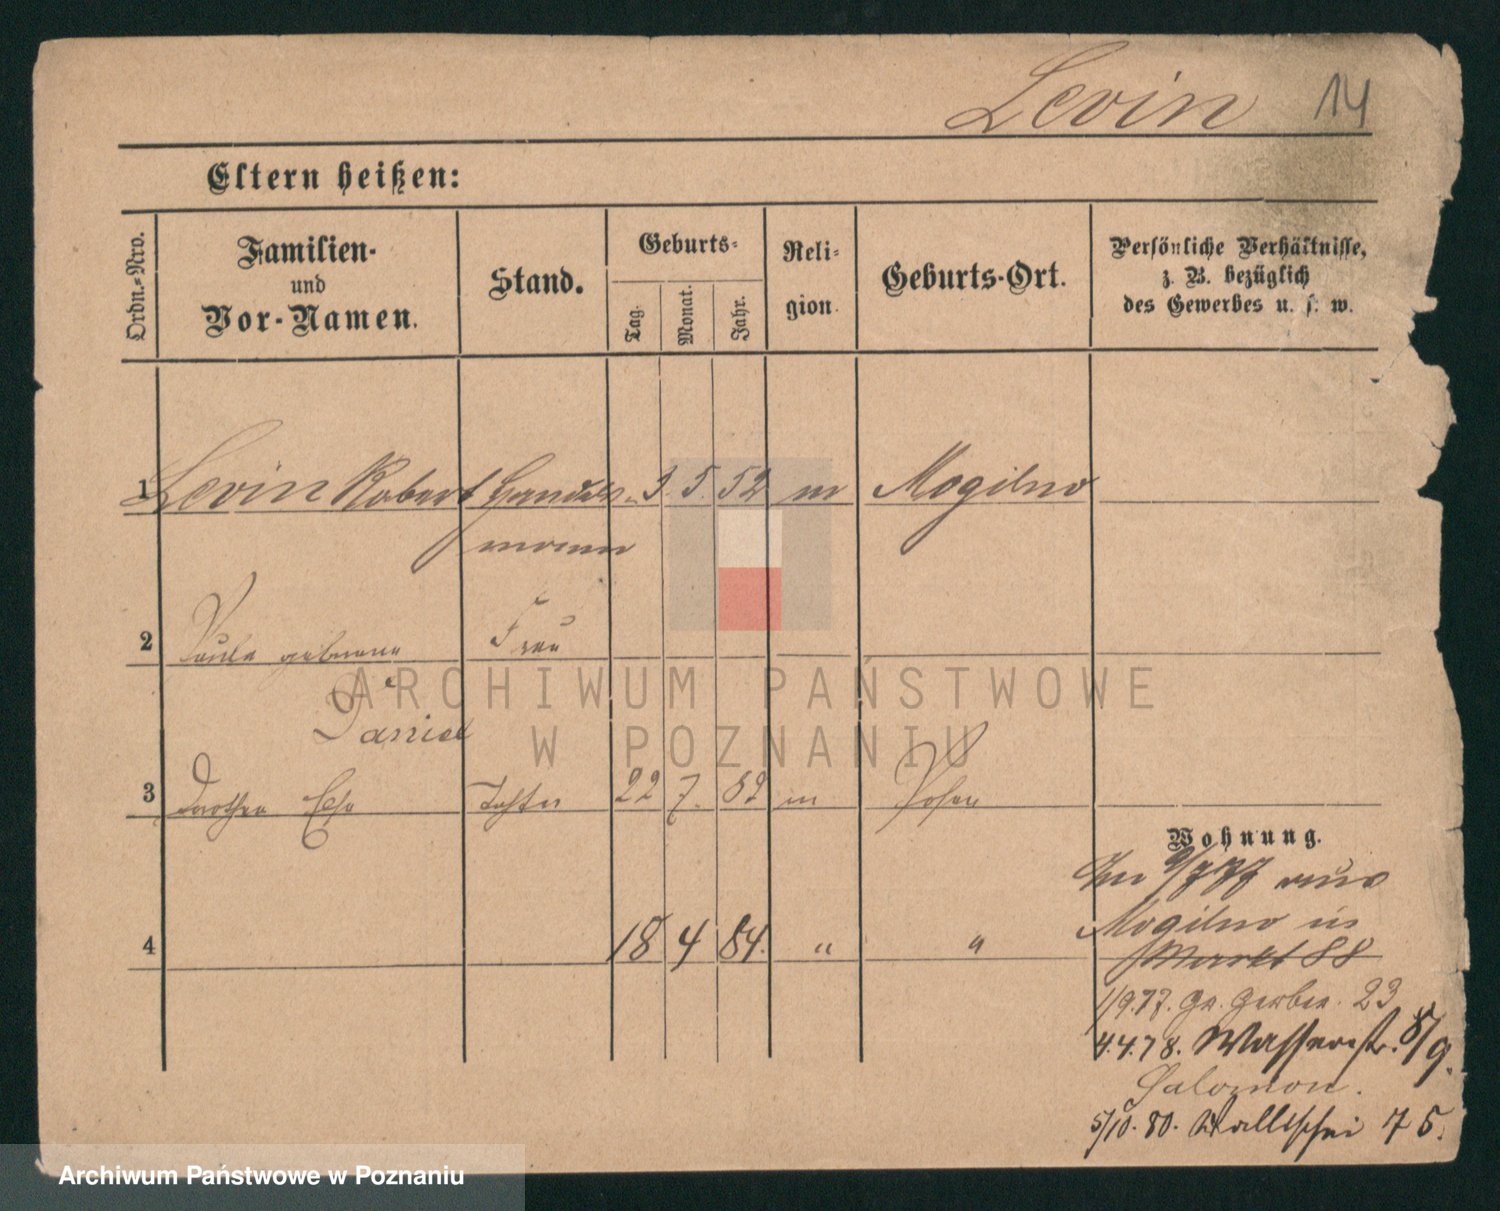 Levin 14
Eltern heißen:
Ordn.-Nro.
Familien-
und
Vor-Namen.
Stand.
Geburts-
Tag.
Monat.
Jahr.
Reli-
gion.
Geburts-Ort.
Persönliche Verhältnisse,
z. B. bezüglich
des Gewerbes u. s. w.
1 Levin Robert Handels- 3. 5. 52 m Mogilno
mann
2 Paula geborene Frau
Daniel
3 Dorothea Tochter 22 7. 82 m Posen
4 18 4 84. " "
Wohnung.
Im 9/7 77 aus
Mogilno in
Markt 88
1/9.77. Gr. Gerber. 23
4.4.78. Wasserstr. 8/9.
Salomon.
5/10. 80. Wallischei 75.
ARCHIWUM PAŃSTWOWE
W POZNANIU
Archiwum Państwowe w Poznaniu